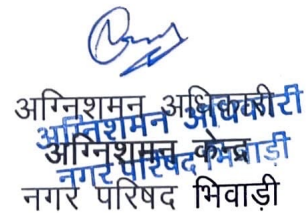 अग्निशमन अधिकारी
अग्निशमन अधिकारी
अग्निशमन केन्द्र
नगर परिषद भिवाड़ी
नगर परिषद भिवाड़ी